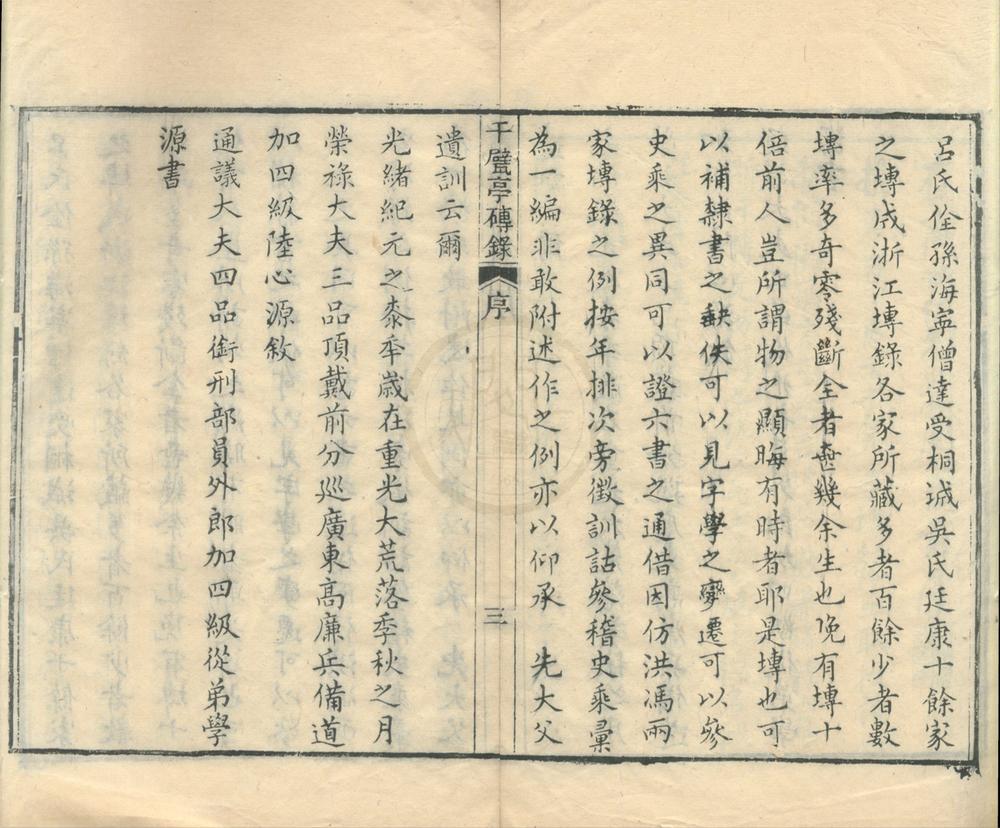 呂氏佺孫海寧僧達受桐城吳氏廷康十餘家
之塼成浙江塼錄各家所藏多者百餘少者數
塼率多奇零殘斷全者甚幾余生也晚有塼十
倍前人豈所謂物之顯晦有時者耶是塼也可
以補隸書之缺佚可以見字學之變遷可以參
史乘之異同可以證六書之通借因仿洪馮兩
家塼錄之例按年排次旁徵訓詁參稽史乘彙
為一編非敢附述作之例亦以仰承 先大父
千甓亭磚錄 序 三
遺訓云爾
光緒紀元之柒年歲在重光大荒落季秋之月
榮祿大夫三品頂戴前分巡廣東高廉兵備道
加四級陸心源敘
通議大夫四品銜刑部員外郎加四級從弟學
源書